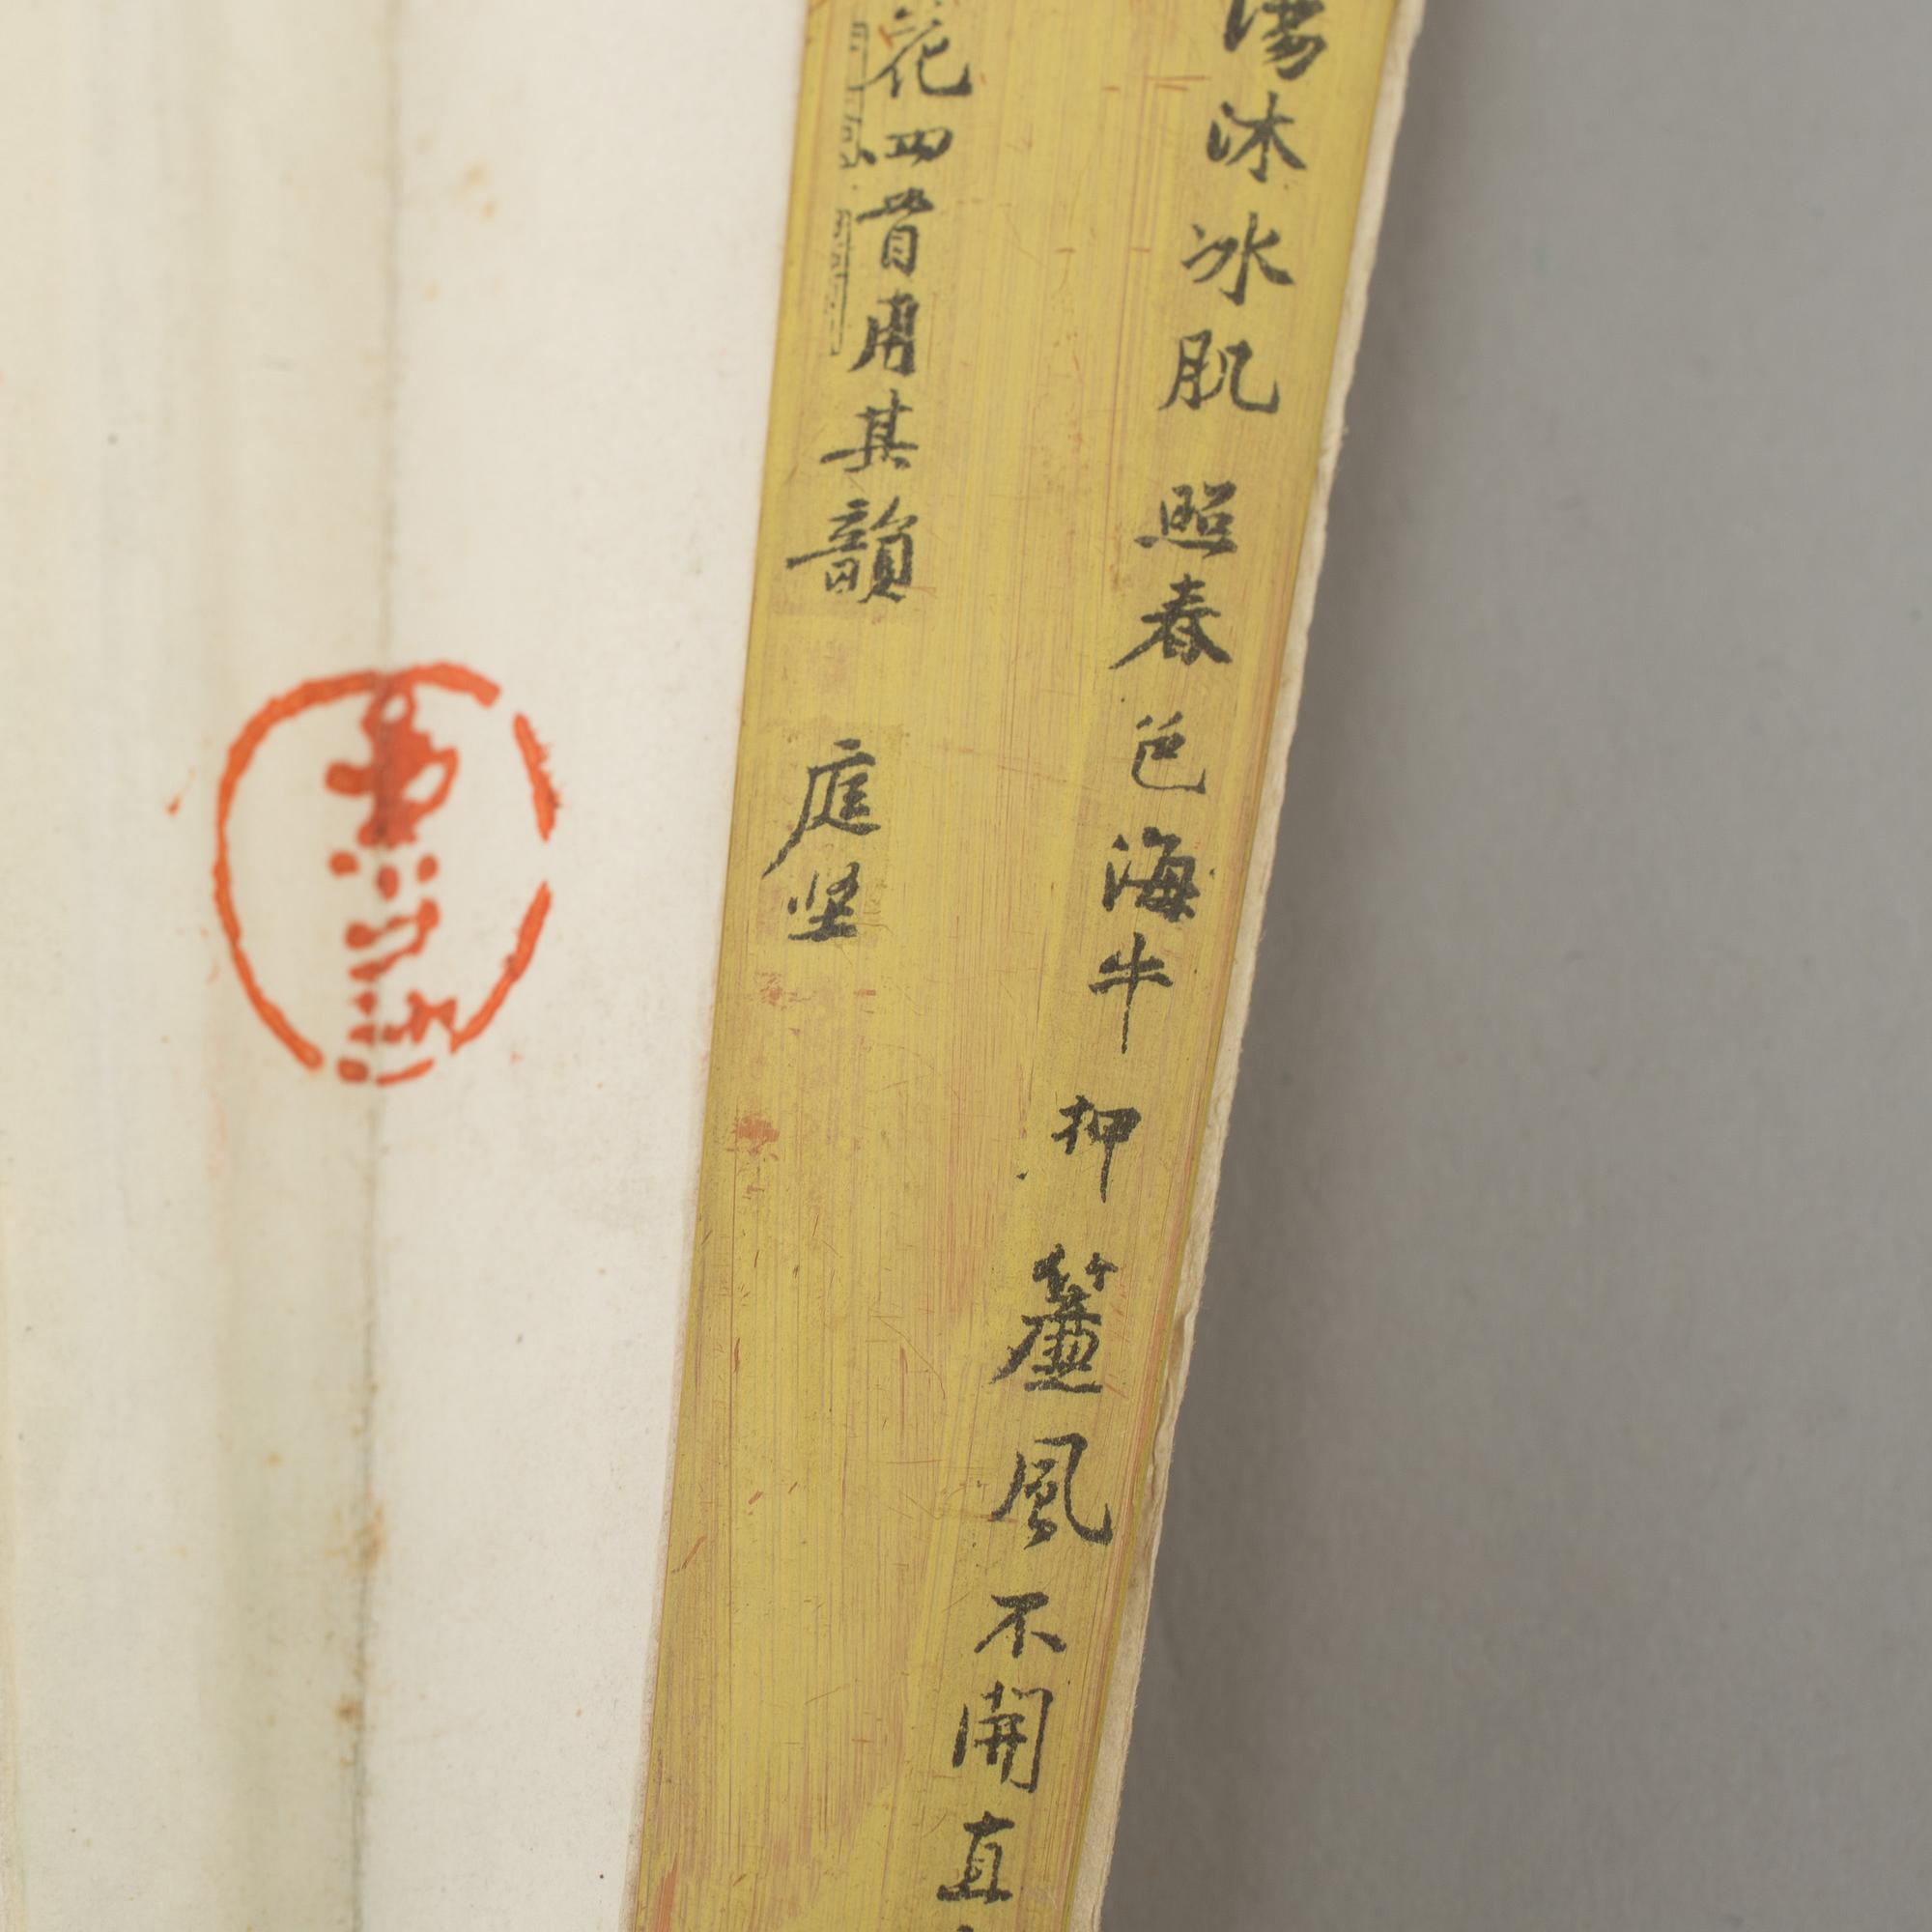 湯沐冰肌照春色海牛押簾風不開直
花四首用其韻 庭堅